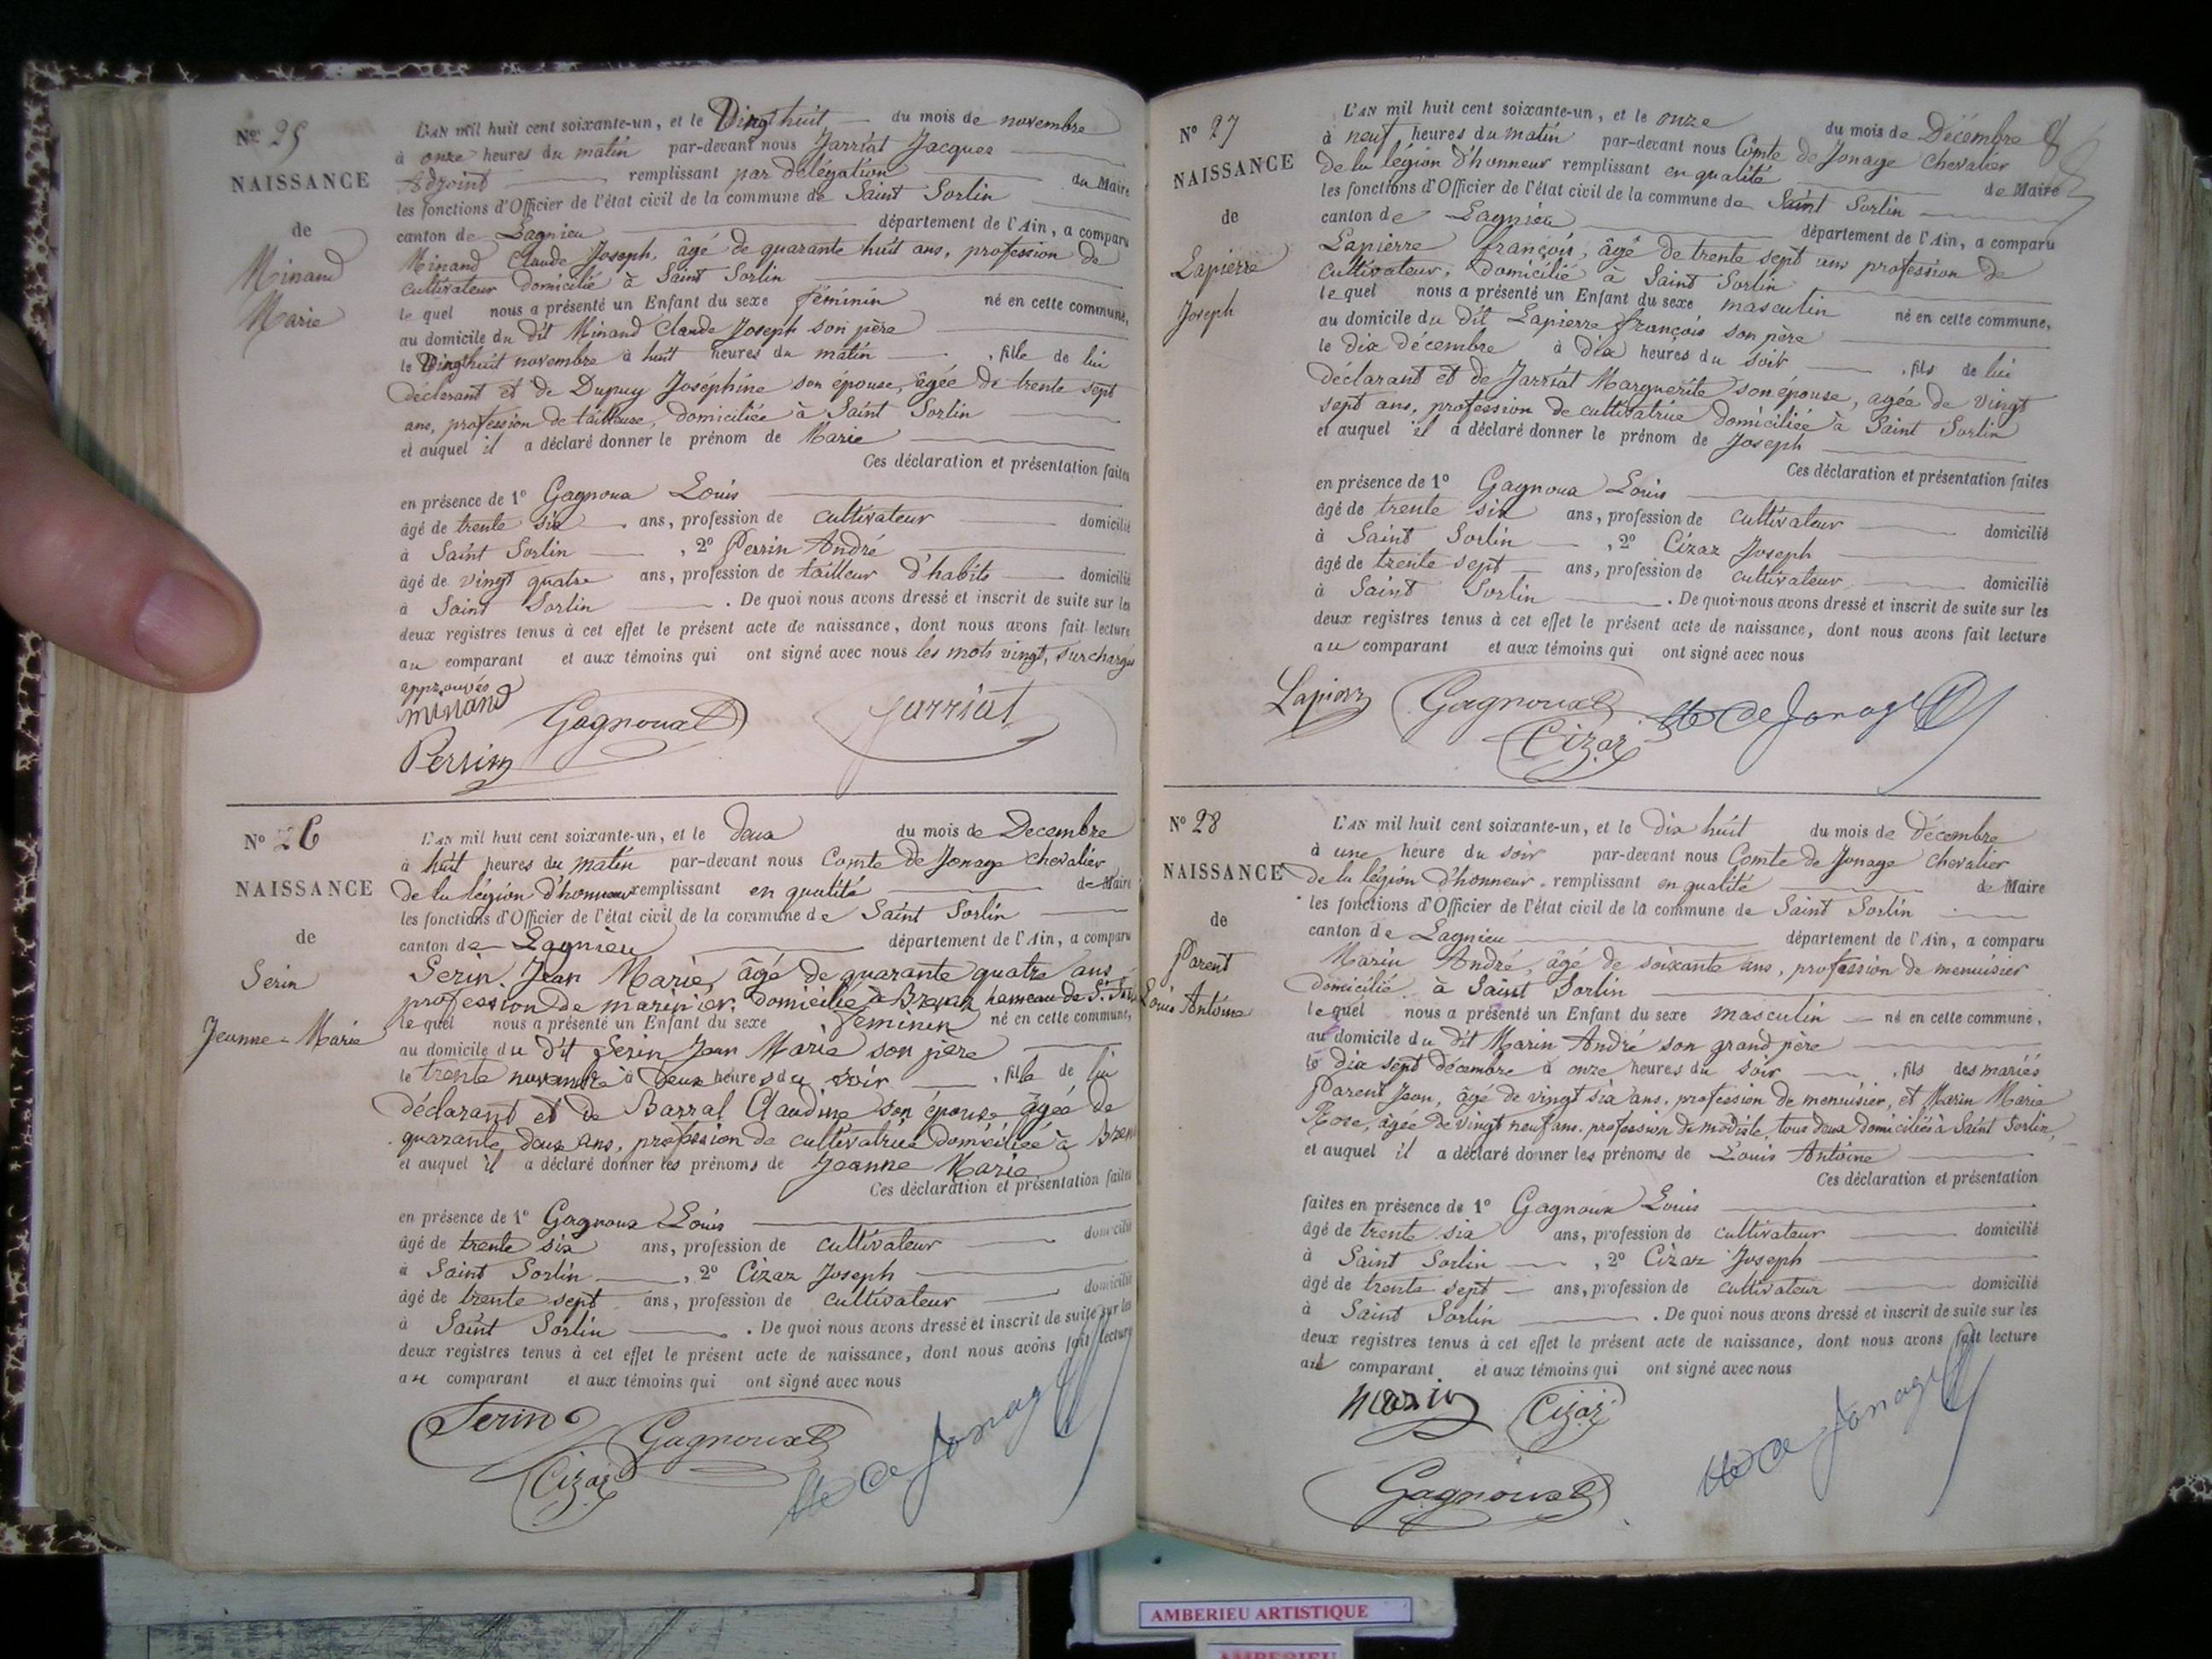 N° 25
NAISSANCE
de
Minand
Marie
L'AN mil huit cent soixante-un, et le Vingt huit du mois de novembre
à onze heures du matin par-devant nous Jarriat Jacques
Adjoint remplissant par délégation du Maire
les fonctions d'Officier de l'état civil de la commune de Saint Sorlin
canton de Lagnieu département de l'Ain, a comparu
Minand Claude Joseph, âgé de quarante huit ans, profession de
cultivateur domicilié à Saint Sorlin
le quel nous a présenté un Enfant du sexe féminin né en cette commune,
au domicile du dit Minand Claude Joseph son père
le Vingthuit novembre à huit heures du matin , fille de lui
déclarant et de Dupuy Joséphine son épouse, âgée de trente sept
ans, profession de tailleuse, domiciliée à Saint Sorlin
et auquel il a déclaré donner le prénom de Marie
Ces déclaration et présentation faites
en présence de 1° Gagnoux Louis
âgé de trente six ans, profession de cultivateur domicilié
à Saint Sorlin , 2° Perrin André
âgé de vingt quatre ans, profession de tailleur d'habits domicilié
à Saint Sorlin . De quoi nous avons dressé et inscrit de suite sur les
deux registres tenus à cet effet le présent acte de naissance, dont nous avons fait lecture
au comparant et aux témoins qui ont signé avec nous les mots vingt, surchargés
approuvés
minand Gagnoux Jarriat
Perrin
N° 26
NAISSANCE
de
Serin
Jeanne-Marie
L'AN mil huit cent soixante-un, et le deux du mois de Decembre
à huit heures du matin par-devant nous Comte de Jonage chevalier
de la légion d'honneur remplissant en qualité de Maire
les fonctions d'Officier de l'état civil de la commune de Saint Sorlin
canton de Lagnieu département de l'Ain, a comparu
Serin Jean Marie, âgé de quarante quatre ans
profession de marinier, domicilié à hameau de St.
le quel nous a présenté un Enfant du sexe feminin né en cette commune,
au domicile du dit Serin Jean Marie son père
le trente novembre à deux heures du soir , fille de lui
déclarant et de Barral Claudine son épouse âgée de
quarante deux ans, profession de cultivatrice domiciliée à
et auquel il a déclaré donner les prénoms de Jeanne Marie
Ces déclaration et présentation faites
en présence de 1° Gagnoux Louis
âgé de trente six ans, profession de cultivateur domicilié
à Saint Sorlin , 2° Cizaz Joseph
âgé de trente sept ans, profession de cultivateur domicilié
à Saint Sorlin . De quoi nous avons dressé et inscrit de suite sur les
deux registres tenus à cet effet le présent acte de naissance, dont nous avons fait lecture
au comparant et aux témoins qui ont signé avec nous
Serin Gagnoux de Jonage
Cizaz
N° 27
NAISSANCE
de
Lapierre
Joseph
L'AN mil huit cent soixante-un, et le onze du mois de Décembre
à neuf heures du matin par-devant nous Comte de Jonage Chevalier
de la légion d'honneur remplissant en qualité de Maire
les fonctions d'Officier de l'état civil de la commune de Saint Sorlin
canton de Lagnieu département de l'Ain, a comparu
Lapierre françois, âgé de trente sept ans profession de
cultivateur, domicilié à Saint Sorlin
le quel nous a présenté un Enfant du sexe masculin né en cette commune,
au domicile du dit Lapierre françois son père
le dix décembre à dix heures du soir , fils de lui
déclarant et de Jarriat Marguerite son épouse, agée de vingt
sept ans, profession de cultivatrice domiciliée à Saint Sorlin
et auquel il a déclaré donner le prénom de Joseph
Ces déclaration et présentation faites
en présence de 1° Gagnoux Louis
âgé de trente six ans, profession de cultivateur domicilié
à Saint Sorlin , 2° Cizaz Joseph
âgé de trente sept ans, profession de cultivateur domicilié
à Saint Sorlin . De quoi nous avons dressé et inscrit de suite sur les
deux registres tenus à cet effet le présent acte de naissance, dont nous avons fait lecture
au comparant et aux témoins qui ont signé avec nous
Lapierre Gagnoux de Jonage
Cizaz
N° 28
NAISSANCE
de
Parent
Louis Antoine
L'AN mil huit cent soixante-un, et le dix huit du mois de Décembre
à une heure du soir par-devant nous Comte de Jonage Chevalier
de la légion d'honneur remplissant en qualité de Maire
les fonctions d'Officier de l'état civil de la commune de Saint Sorlin
canton de Lagnieu département de l'Ain, a comparu
Marin André, âgé de soixante ans, profession de menuisier
domicilié à Saint Sorlin
le quel nous a présenté un Enfant du sexe masculin né en cette commune,
au domicile du dit Marin André son grand père
le dix sept décembre à onze heures du soir , fils des mariés
Parent Jean, âgé de vingt six ans, profession de menuisier, et Marin Marie
Rose, âgée de vingt neuf ans, profession de modiste, tous deux domiciliés à Saint Sorlin,
et auquel il a déclaré donner les prénoms de Louis Antoine
Ces déclaration et présentation
faites en présence de 1° Gagnoux Louis
âgé de trente six ans, profession de cultivateur domicilié
à Saint Sorlin , 2° Cizaz Joseph
âgé de trente sept ans, profession de cultivateur domicilié
à Saint Sorlin . De quoi nous avons dressé et inscrit de suite sur les
deux registres tenus à cet effet le présent acte de naissance, dont nous avons fait lecture
au comparant et aux témoins qui ont signé avec nous
Marin Cizaz de Jonage
Gagnoux
AMBERIEU ARTISTIQUE
AMBERIEU